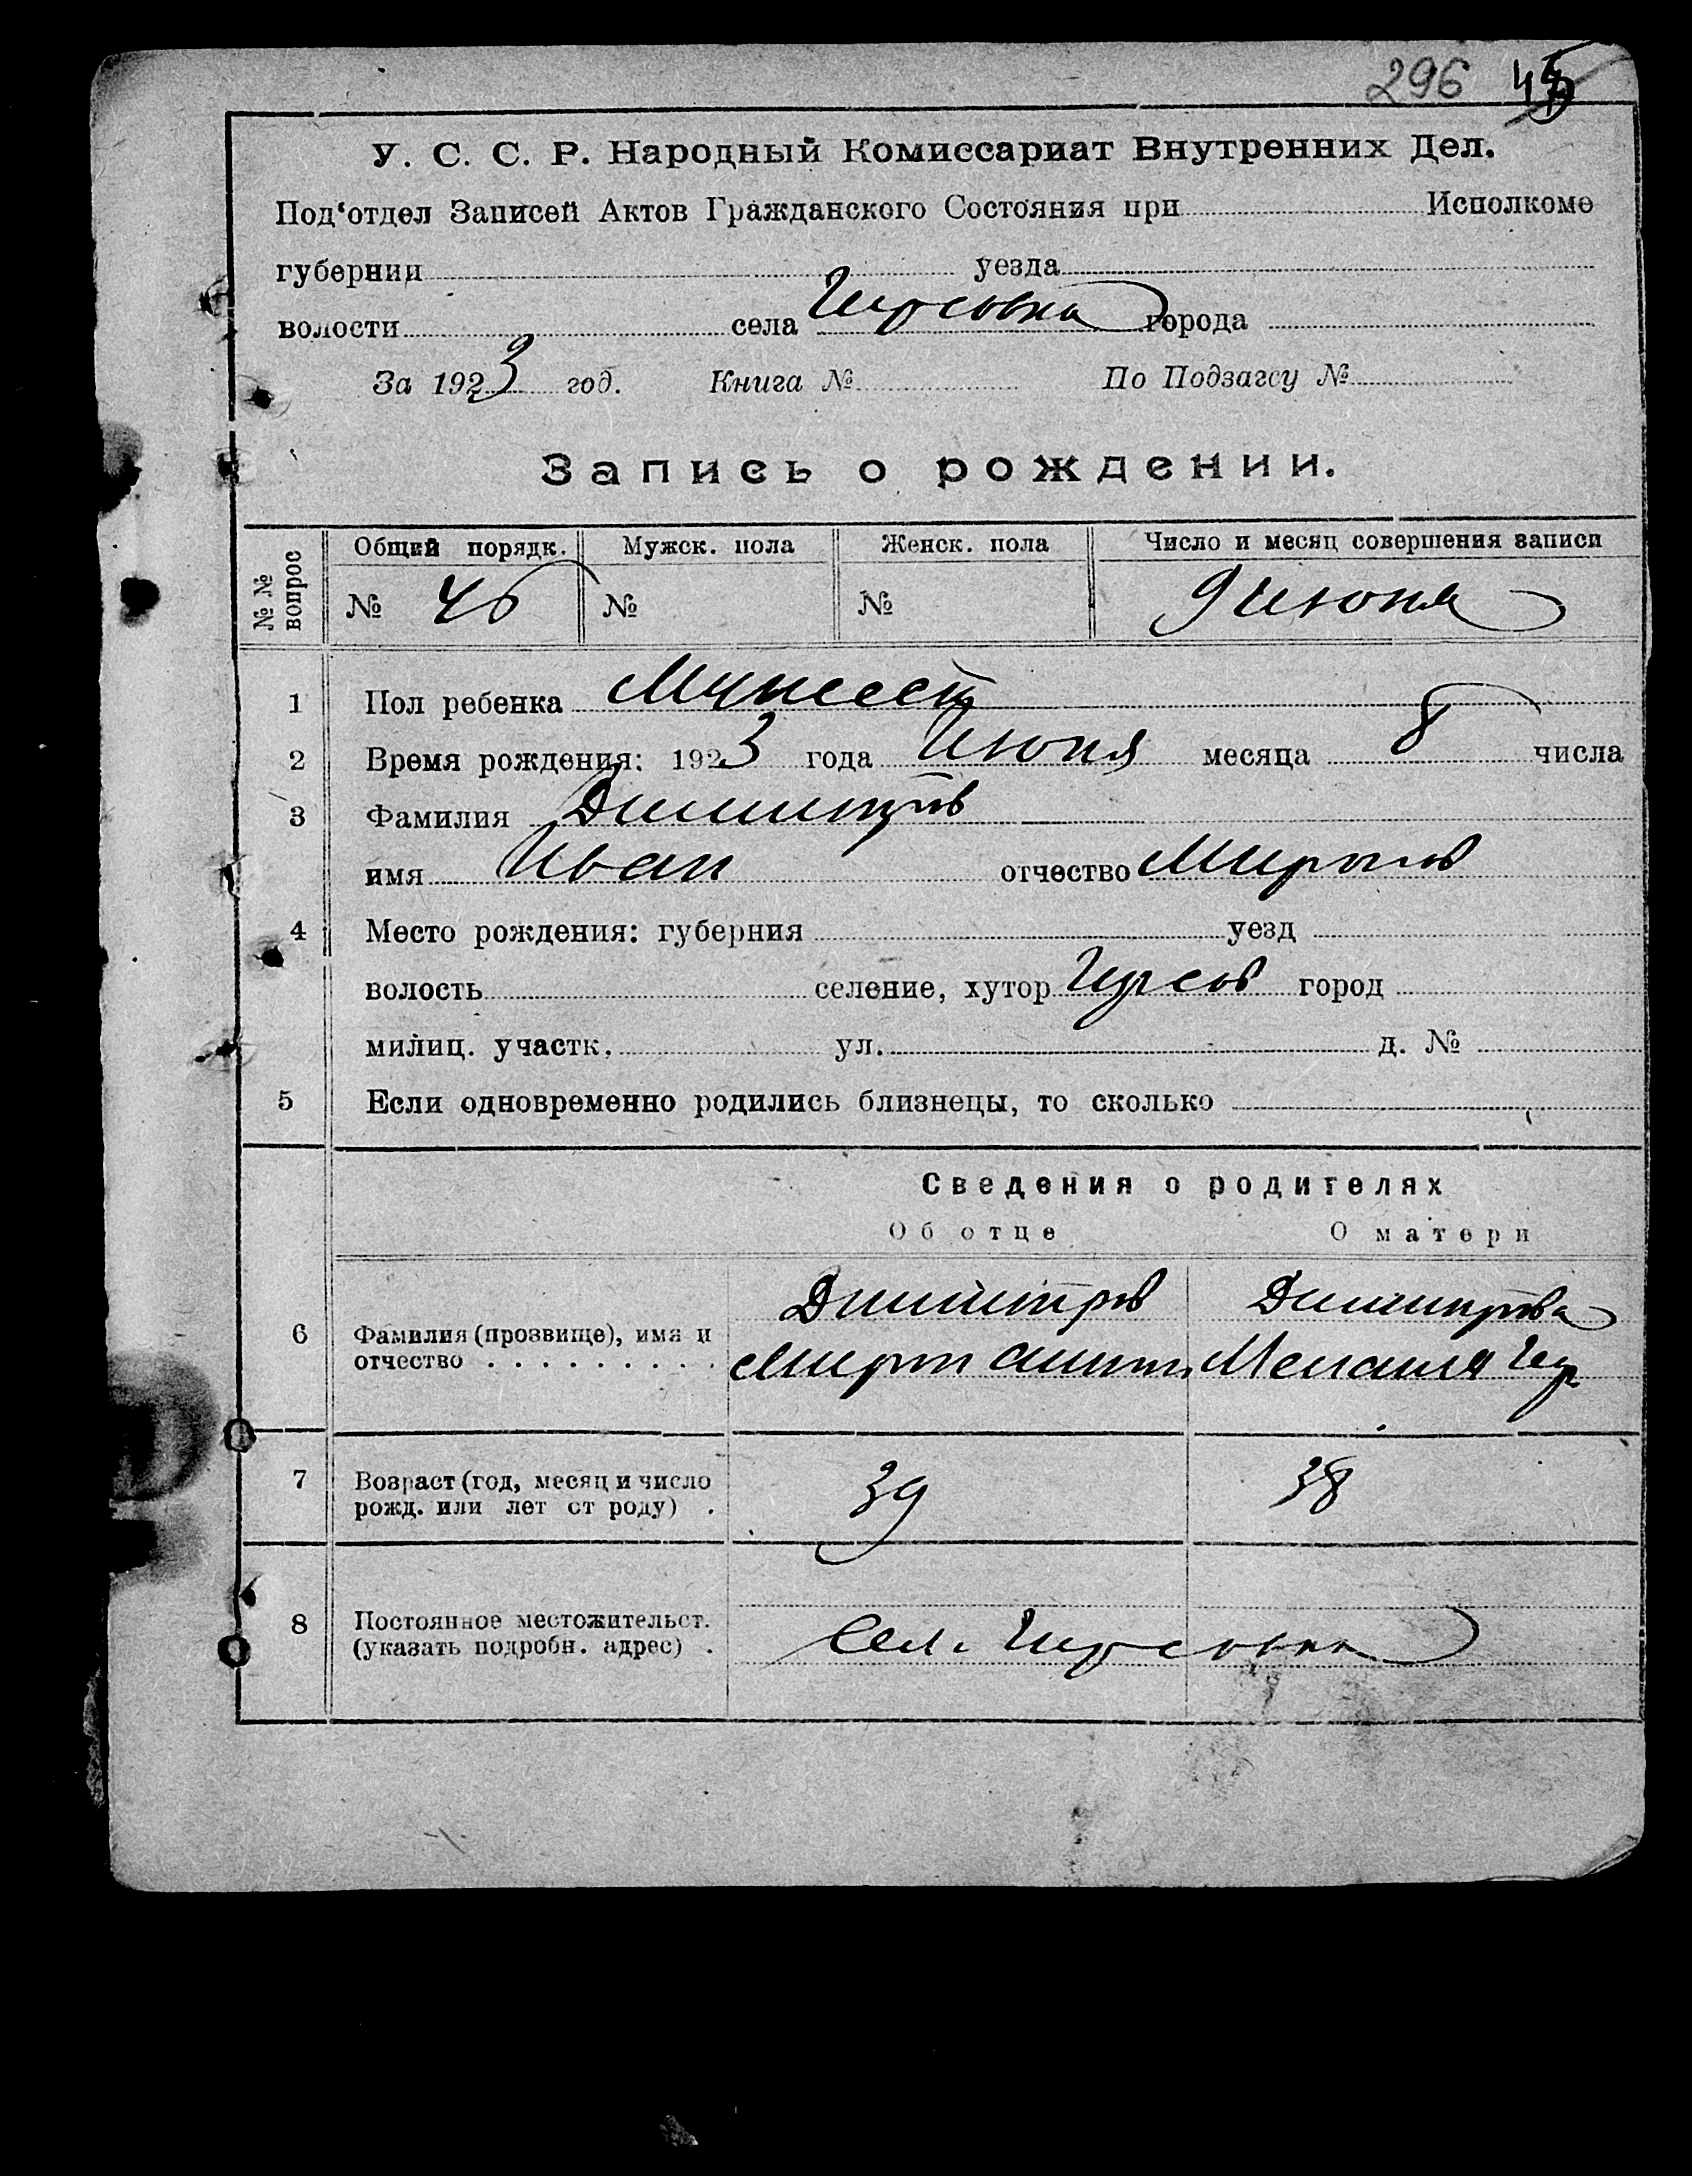 296 45
У. С. С. Р. Народный Комиссариат Внутренних Дел.
Под‘отдел Записей Актов Гражданского Состояния при Исполкоме
губернии уезда
волости села Гирсовка города
За 1923 год. Книга № По Подзагсу №
Запись о рождении.
№ № вопрос Общий порядк. Мужск. пола Женск. пола Число и месяц совершения записи
№ 46 № № 9 июня
1 Пол ребенка Мужеск
2 Время рождения: 1923 года Июня месяца 8 числа
3 Фамилия Димитров
имя Иван отчество Миронов
4 Место рождения: губерния уезд
волость селение, хутор Гирсов город
милиц. участк. ул. д. №
5 Если одновременно родились близнецы, то сколько
Сведения о родителях
Об отце О матери
Димитров Димитрова
6 Фамилия (прозвище), имя и
отчество . . . . . . . . . . Мирон Мелания
7 Возраст (год, месяц и число
рожд. или лет от роду) . 39 38
8 Постоянное местожительст.
(указать подробн. адрес) . Сел. Гирсовка